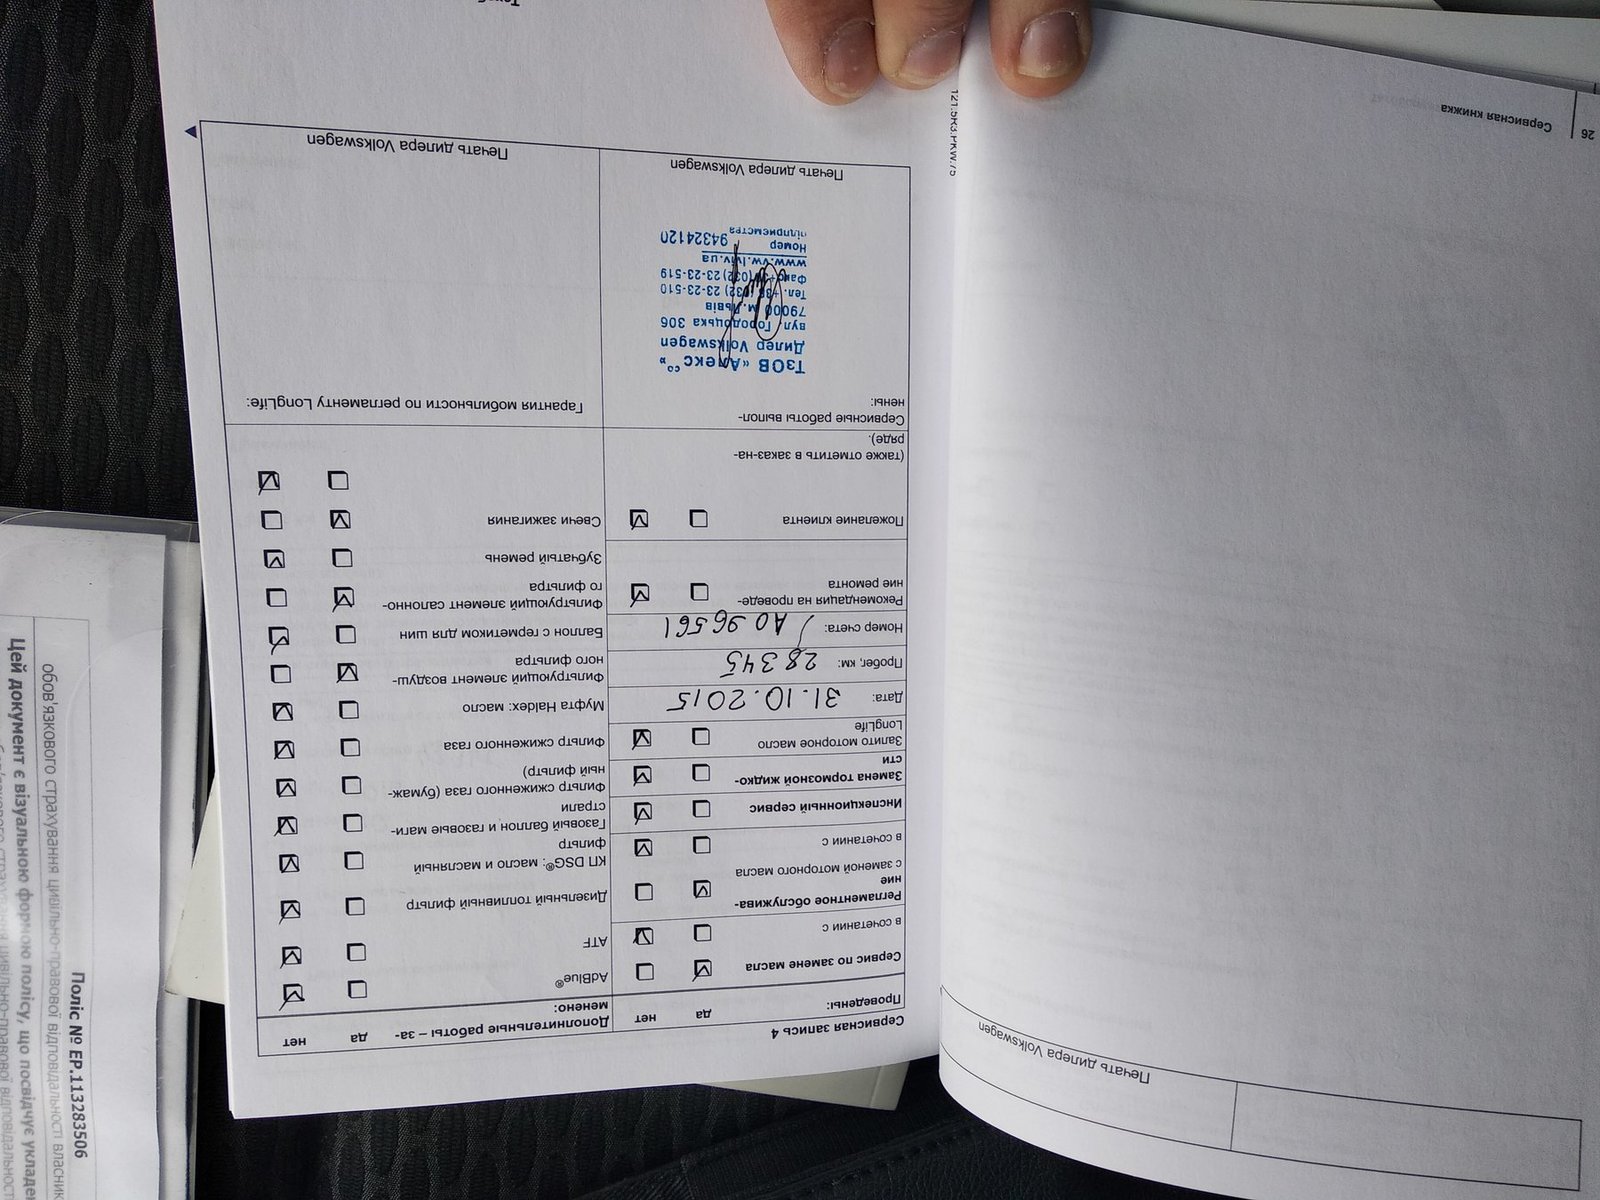 Сервисная запись 4
Проведены:
да
нет
Сервис по замене масла
в сочетании с
Регламентное обслужива-
ние
с заменой моторного масла
в сочетании с
Инспекционный сервис
Замена тормозной жидко-
сти
Залито моторное масло
LongLife
Дата: 31.10.2015
Пробег, км: 28345
Номер счета: А096561
Рекомендация на проведе-
ние ремонта
Пожелание клиента
(также отметить в заказ-на-
ряде).
Сервисные работы выпол-
нены:
ТзОВ «Алекс со»
Дилер Volkswagen
вул. Городоцька 306
79000 м.Львів
Тел. +38 (032) 23-23-510
Факс (032) 23-23-519
www.vw.lviv.ua
Номер 94324120
підприємства
Печать дилера Volkswagen
Дополнительные работы – за-
менено:
да
нет
AdBlue®
ATF
Дизельный топливный фильтр
КП DSG®: масло и масляный
фильтр
Газовый баллон и газовые маги-
страли
Фильтр сжиженного газа (бумаж-
ный фильтр)
Фильтр сжиженного газа
Муфта Haldex: масло
Фильтрующий элемент воздуш-
ного фильтра
Баллон с герметиком для шин
Фильтрующий элемент салонно-
го фильтра
Зубчатый ремень
Свечи зажигания
Гарантия мобильности по регламенту LongLife:
Печать дилера Volkswagen
Печать дилера Volkswagen
26
Сервисная книжка
Поліс № ЕР.113283506
обов'язкового страхування цивільно-правової відповідальності власник
Цей документ є візуальною формою полісу, що посвідчує укладен